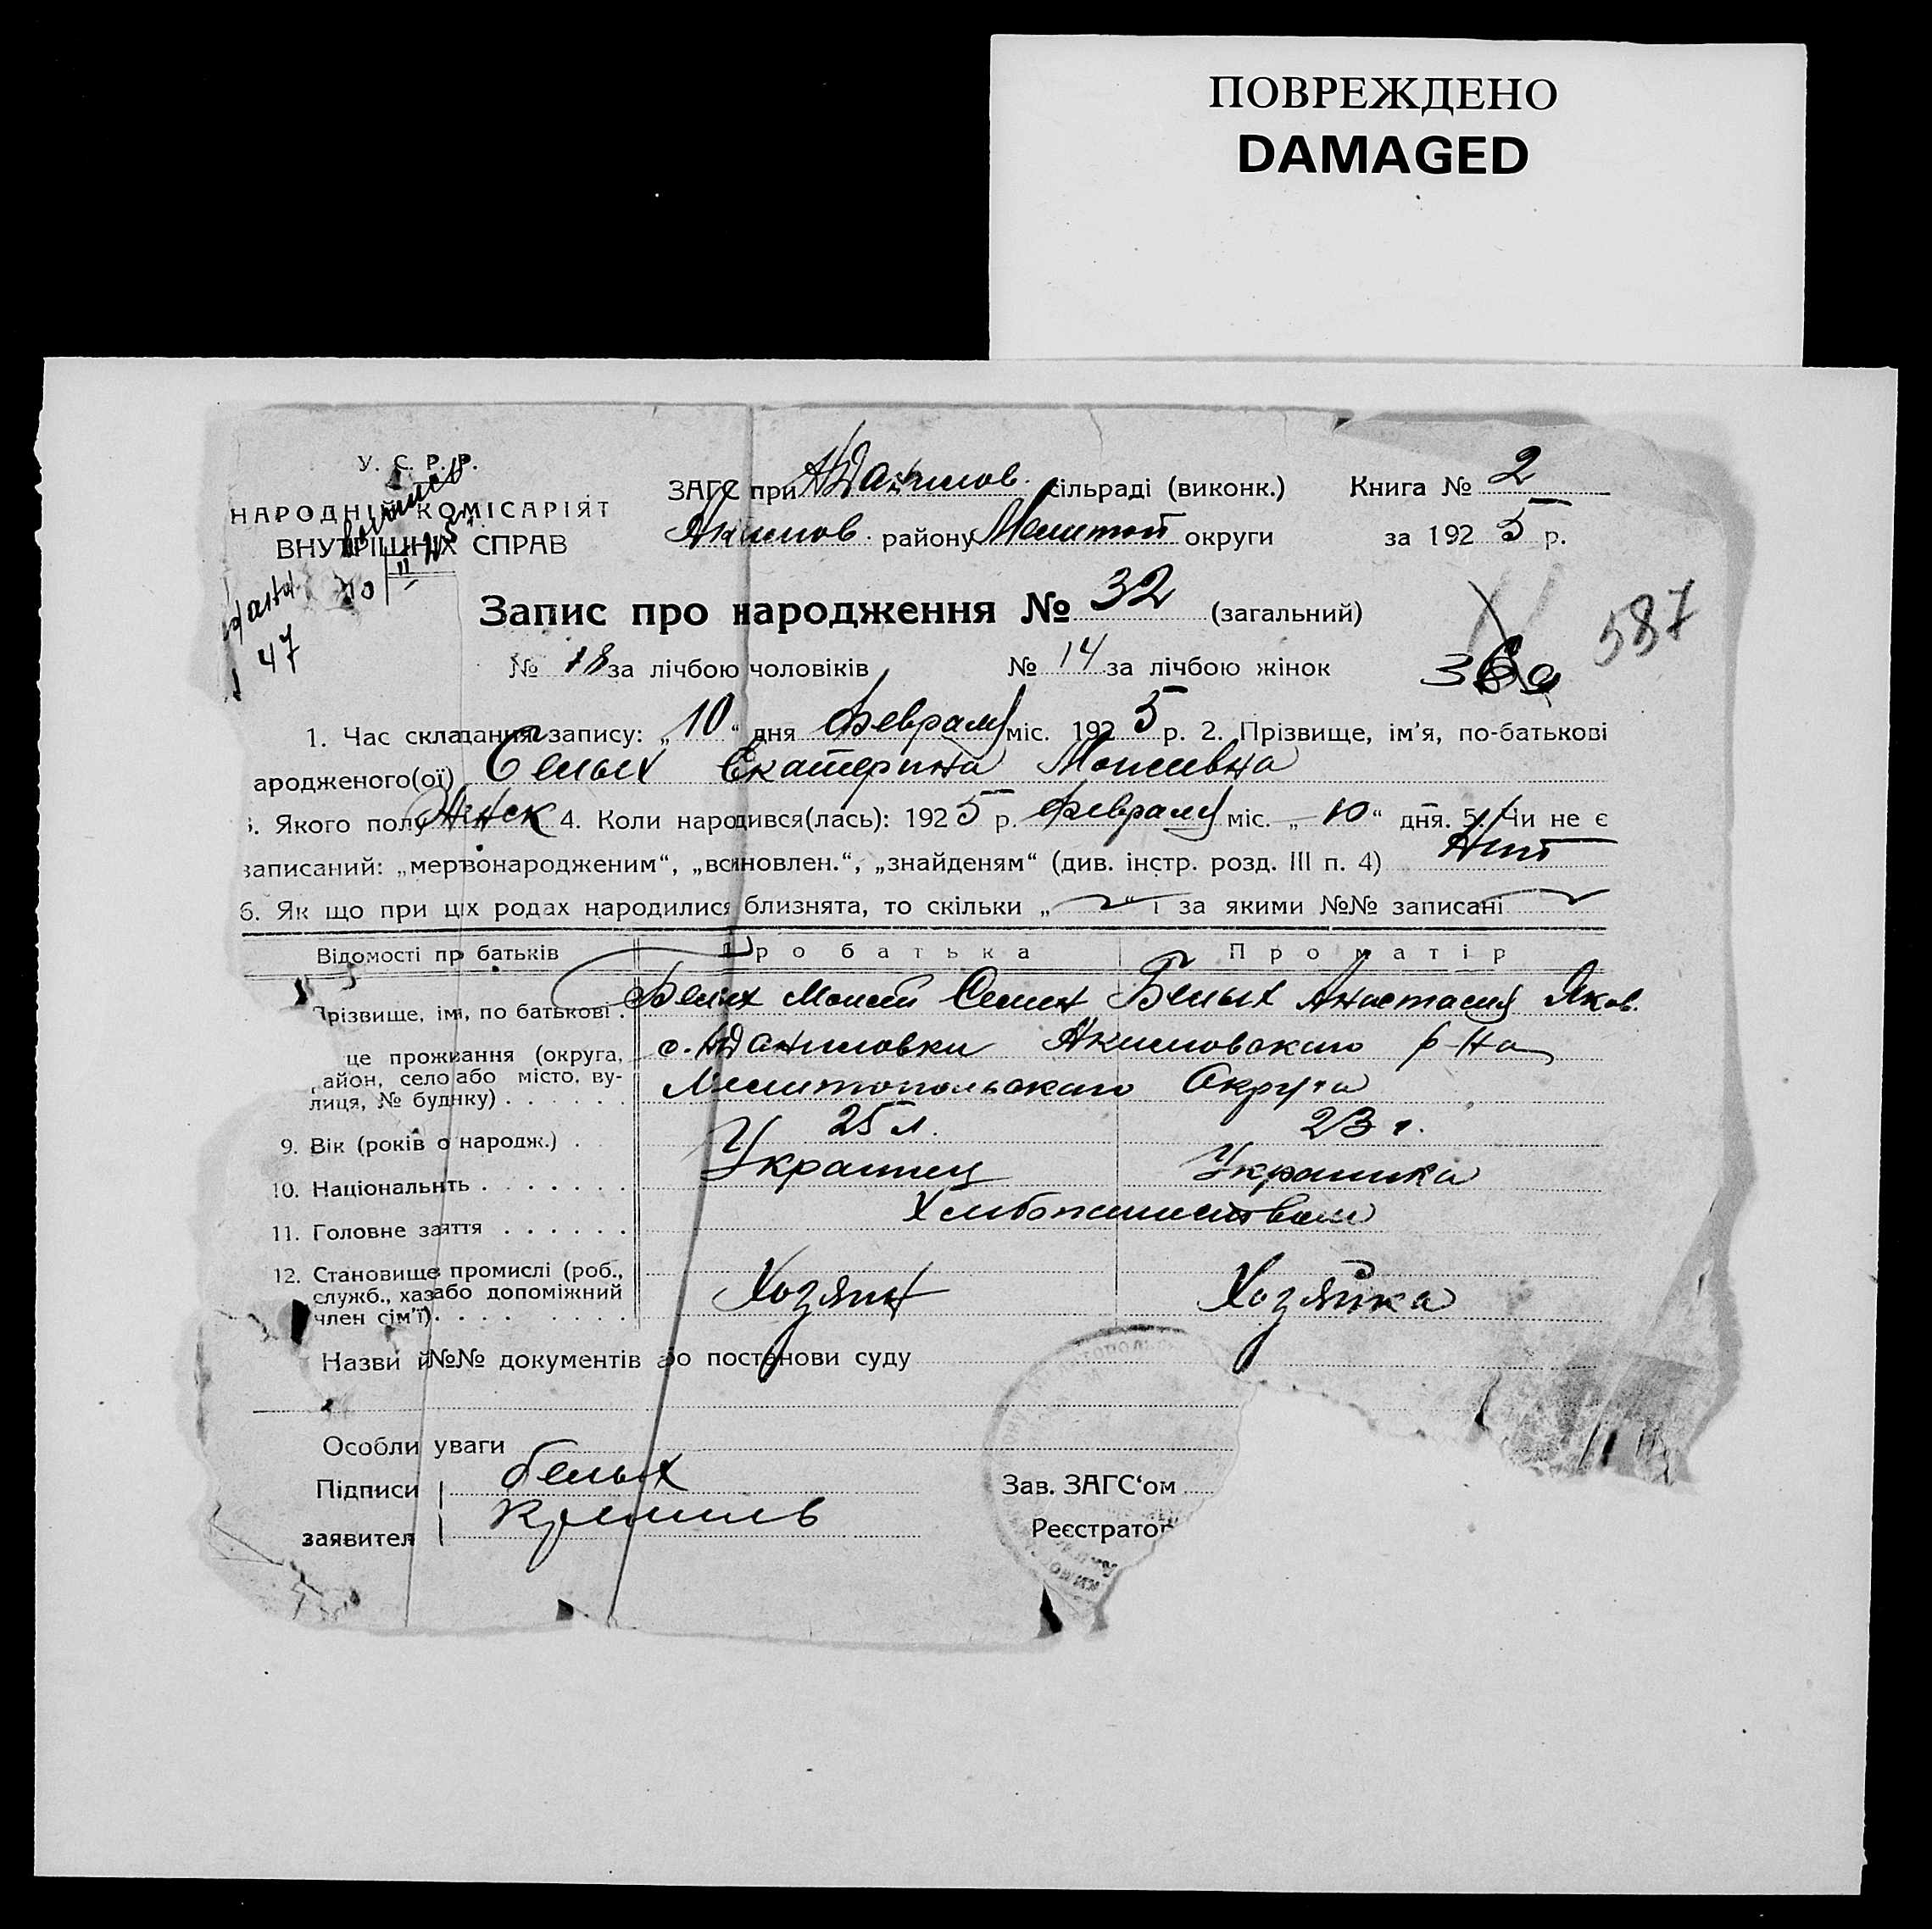 ПОВРЕЖДЕНО
DAMAGED
У. С. Р. Р.
НАРОДНІЙ КОМІСАРІЯТ
ВНУТРІШНІХ СПРАВ
10 II 25
47
ЗАГС при НДанилов. сільраді (виконк.) Книга № 2
Якимов. району Мелитоп округи за 1925 р.
Запис про народження № 32 (загальний)
587
№ 18 за лічбою чоловіків № 14 за лічбою жінок
1. Час складання запису: „10“ дня февраля міс. 1925 р. 2. Прізвище, ім’я, по-батькові
ародженого(ої) Белых Екатерина Моисевна
. Якого полу Женск 4. Коли народився(лась): 1925 р. февраля міс. „10“ дня. 5. Чи не є
записаний: „мертвонародженим“, „всиновлен.“, „знайденям“ (див. інстр. розд. III п. 4) Нет
6. Як що при ціх родах народилися близнята, то скільки „ “ і за якими №№ записані
Відомості пр батьків Про батька Про матір
Прізвище, імя, по батькові . Белых Моисей Семен Белых Анастасия Яков.
це проживання (округа, район, село або місто, ву-лиця, № будинку) . . . . . .
с. НДаниловки Акимовскаго р-на
Мелитопольскаго Округа
9. Вік (років о народж.) . 25 л. 23 г.
10. Національнть . . . . . . . Украинец Украинка
11. Головне заяття . . . . . . Хлебопашеством
12. Становище промислі (роб.,
служб., хаз або допоміжний
член сім’ї) . . . . Хозяин Хозяйка
Назви й №№ документів або постанови суду
Особли уваги
Підписи Белых
заявител
Зав. ЗАГС‘ом
Реєстратор